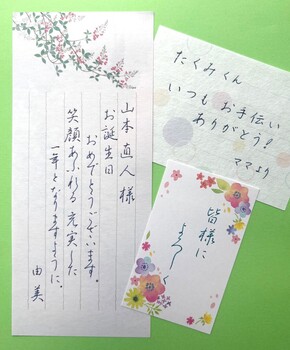 山本直人様
お誕生日
おめでとうございます。
笑顔あふれる充実した
一年となりますように。
由美
たくみくん
いつもお手伝い
ありがとう!
ママより
皆様に
よろしく